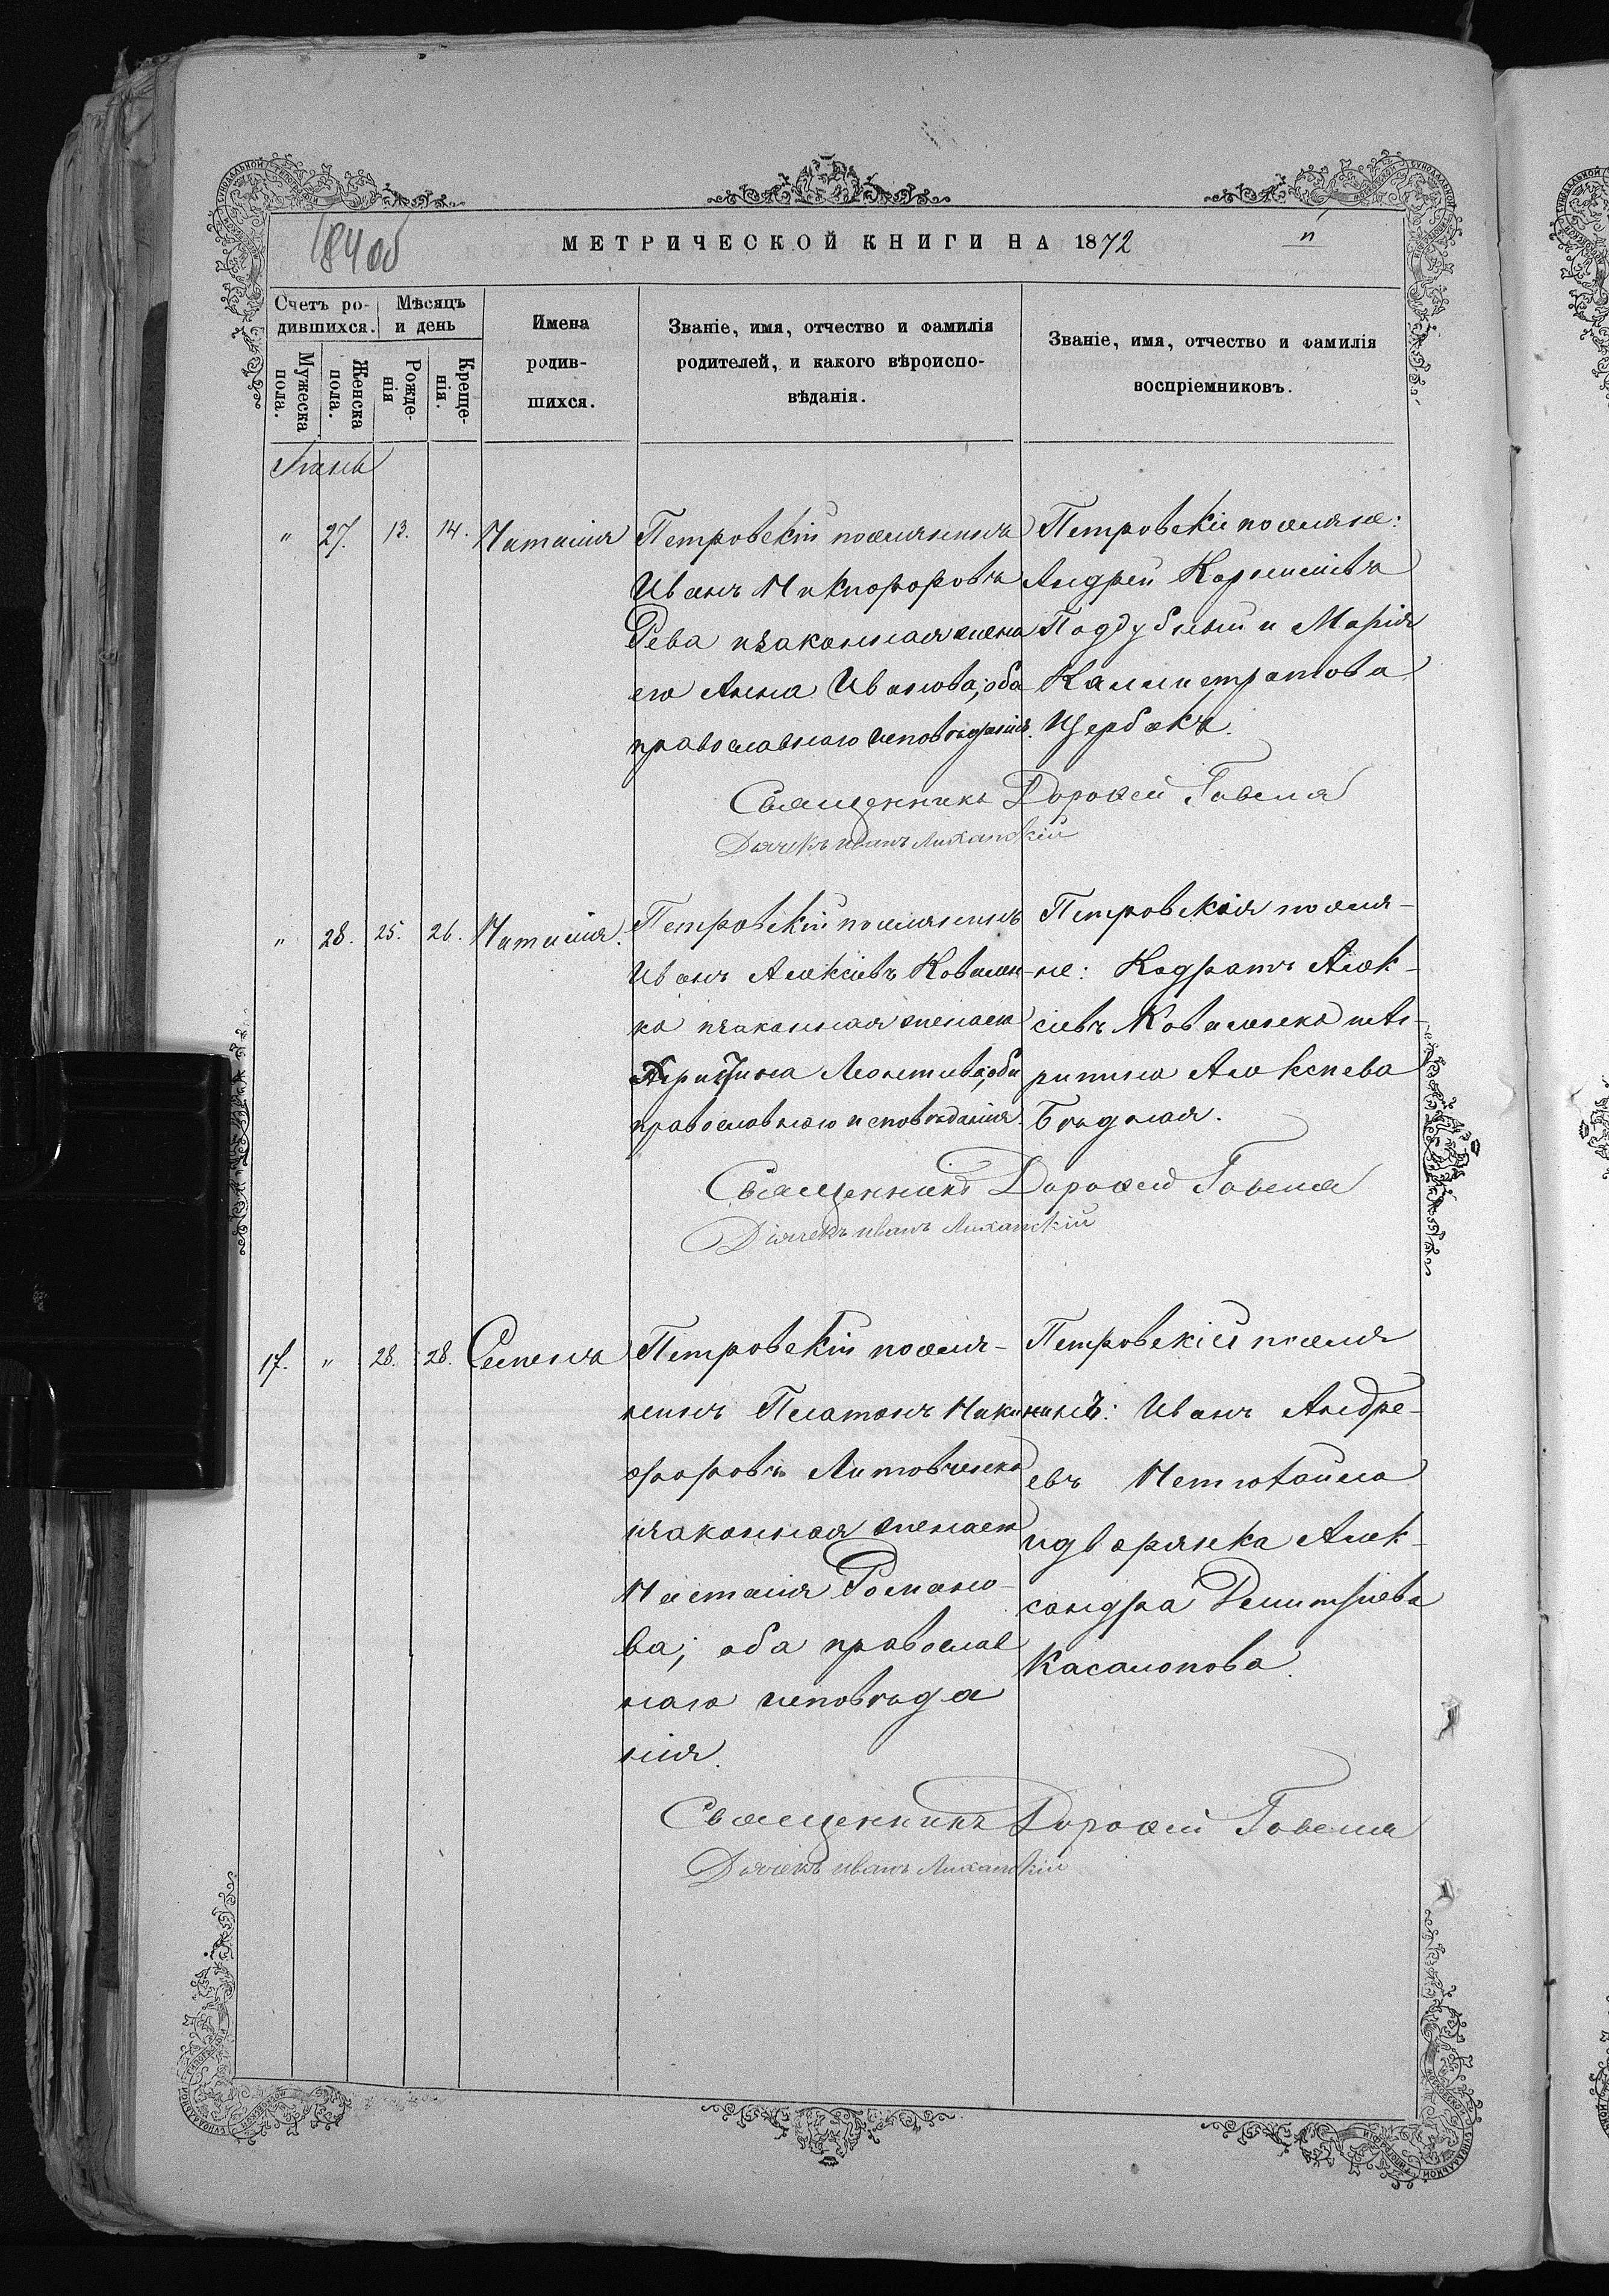 184 об
МЕТРИЧЕСКОЙ КНИГИ НА 1872
Счетъ ро-
дившихся.
Мѣсяцъ
и день
Мужеска
пола.
Женска
пола.
Рожде-
нія
Креще-
нія.
Имена
родив-
шихся.
Званіе, имя, отчество и фамилія
родителей, и какого вѣроиспо-
вѣданія.
Званіе, имя, отчество и фамилія
воспріемниковъ.
" 27. 13. 14. Наталія
Петровскій поселянинъ
Иванъ Никифоровъ
Рева изаконная жена
его Анна Иванова; оба
православнаго исповѣданія.
Петровскіе поселяне:
Андрей Корнилievъ
Поддубный и Марія
Каллистратова
Щербакъ.
Священникъ Дорофей Говеля
Дьячекъ Иванъ Лиханскій
" 28. 25. 26. Наталія.
Петровскій поселянинъ
Иванъ Алексіевъ Ковален-
ко изаконная жена его
Христина Леонтиева; оба
православнаго исповѣданія.
Петровскія поселя-
не: Кодратъ Алек-
сіевъ Коваленко
Алексѣева
Бѣдная.
Священникъ Дорофей Говеля
Діячекъ Иванъ Лиханскій
17. " 28. 28. Семенъ
Петровскій поселя-
нинъ Платонъ Ники
форовъ Литовченко
изаконная жена его
Наталія Романо-
ва; оба православ
наго исповѣда
нія.
Петровскій поселя
нинъ: Иванъ Андре-
евъ Нетютайло
идворянка Алек-
сандра Димитріева
Касалопова.
Священникъ Дорофей Говеля
Дьячекъ Иванъ Лиханскій